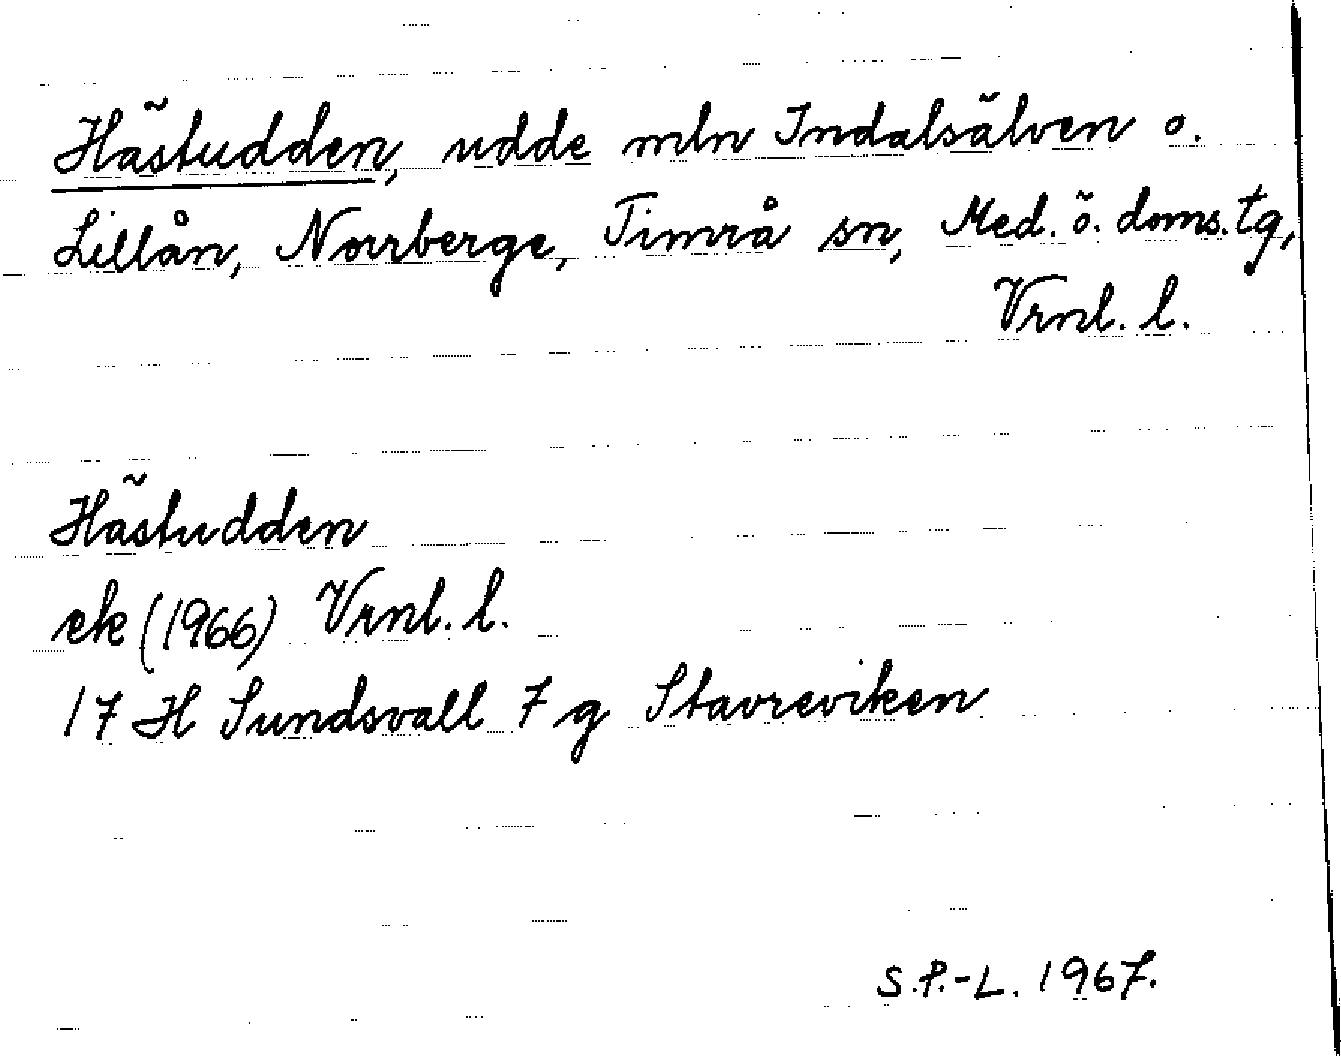 Hästudden, udde mln Indalsälven o.
Lillån, Norrberge, Timrå sn, Med. ö. doms. tg,
Vrnl. l.
Hästudden
ek (1966) Vrnl. l.
17 H Sundsvall 7 g Stavreviken
S.P.-L. 1967.